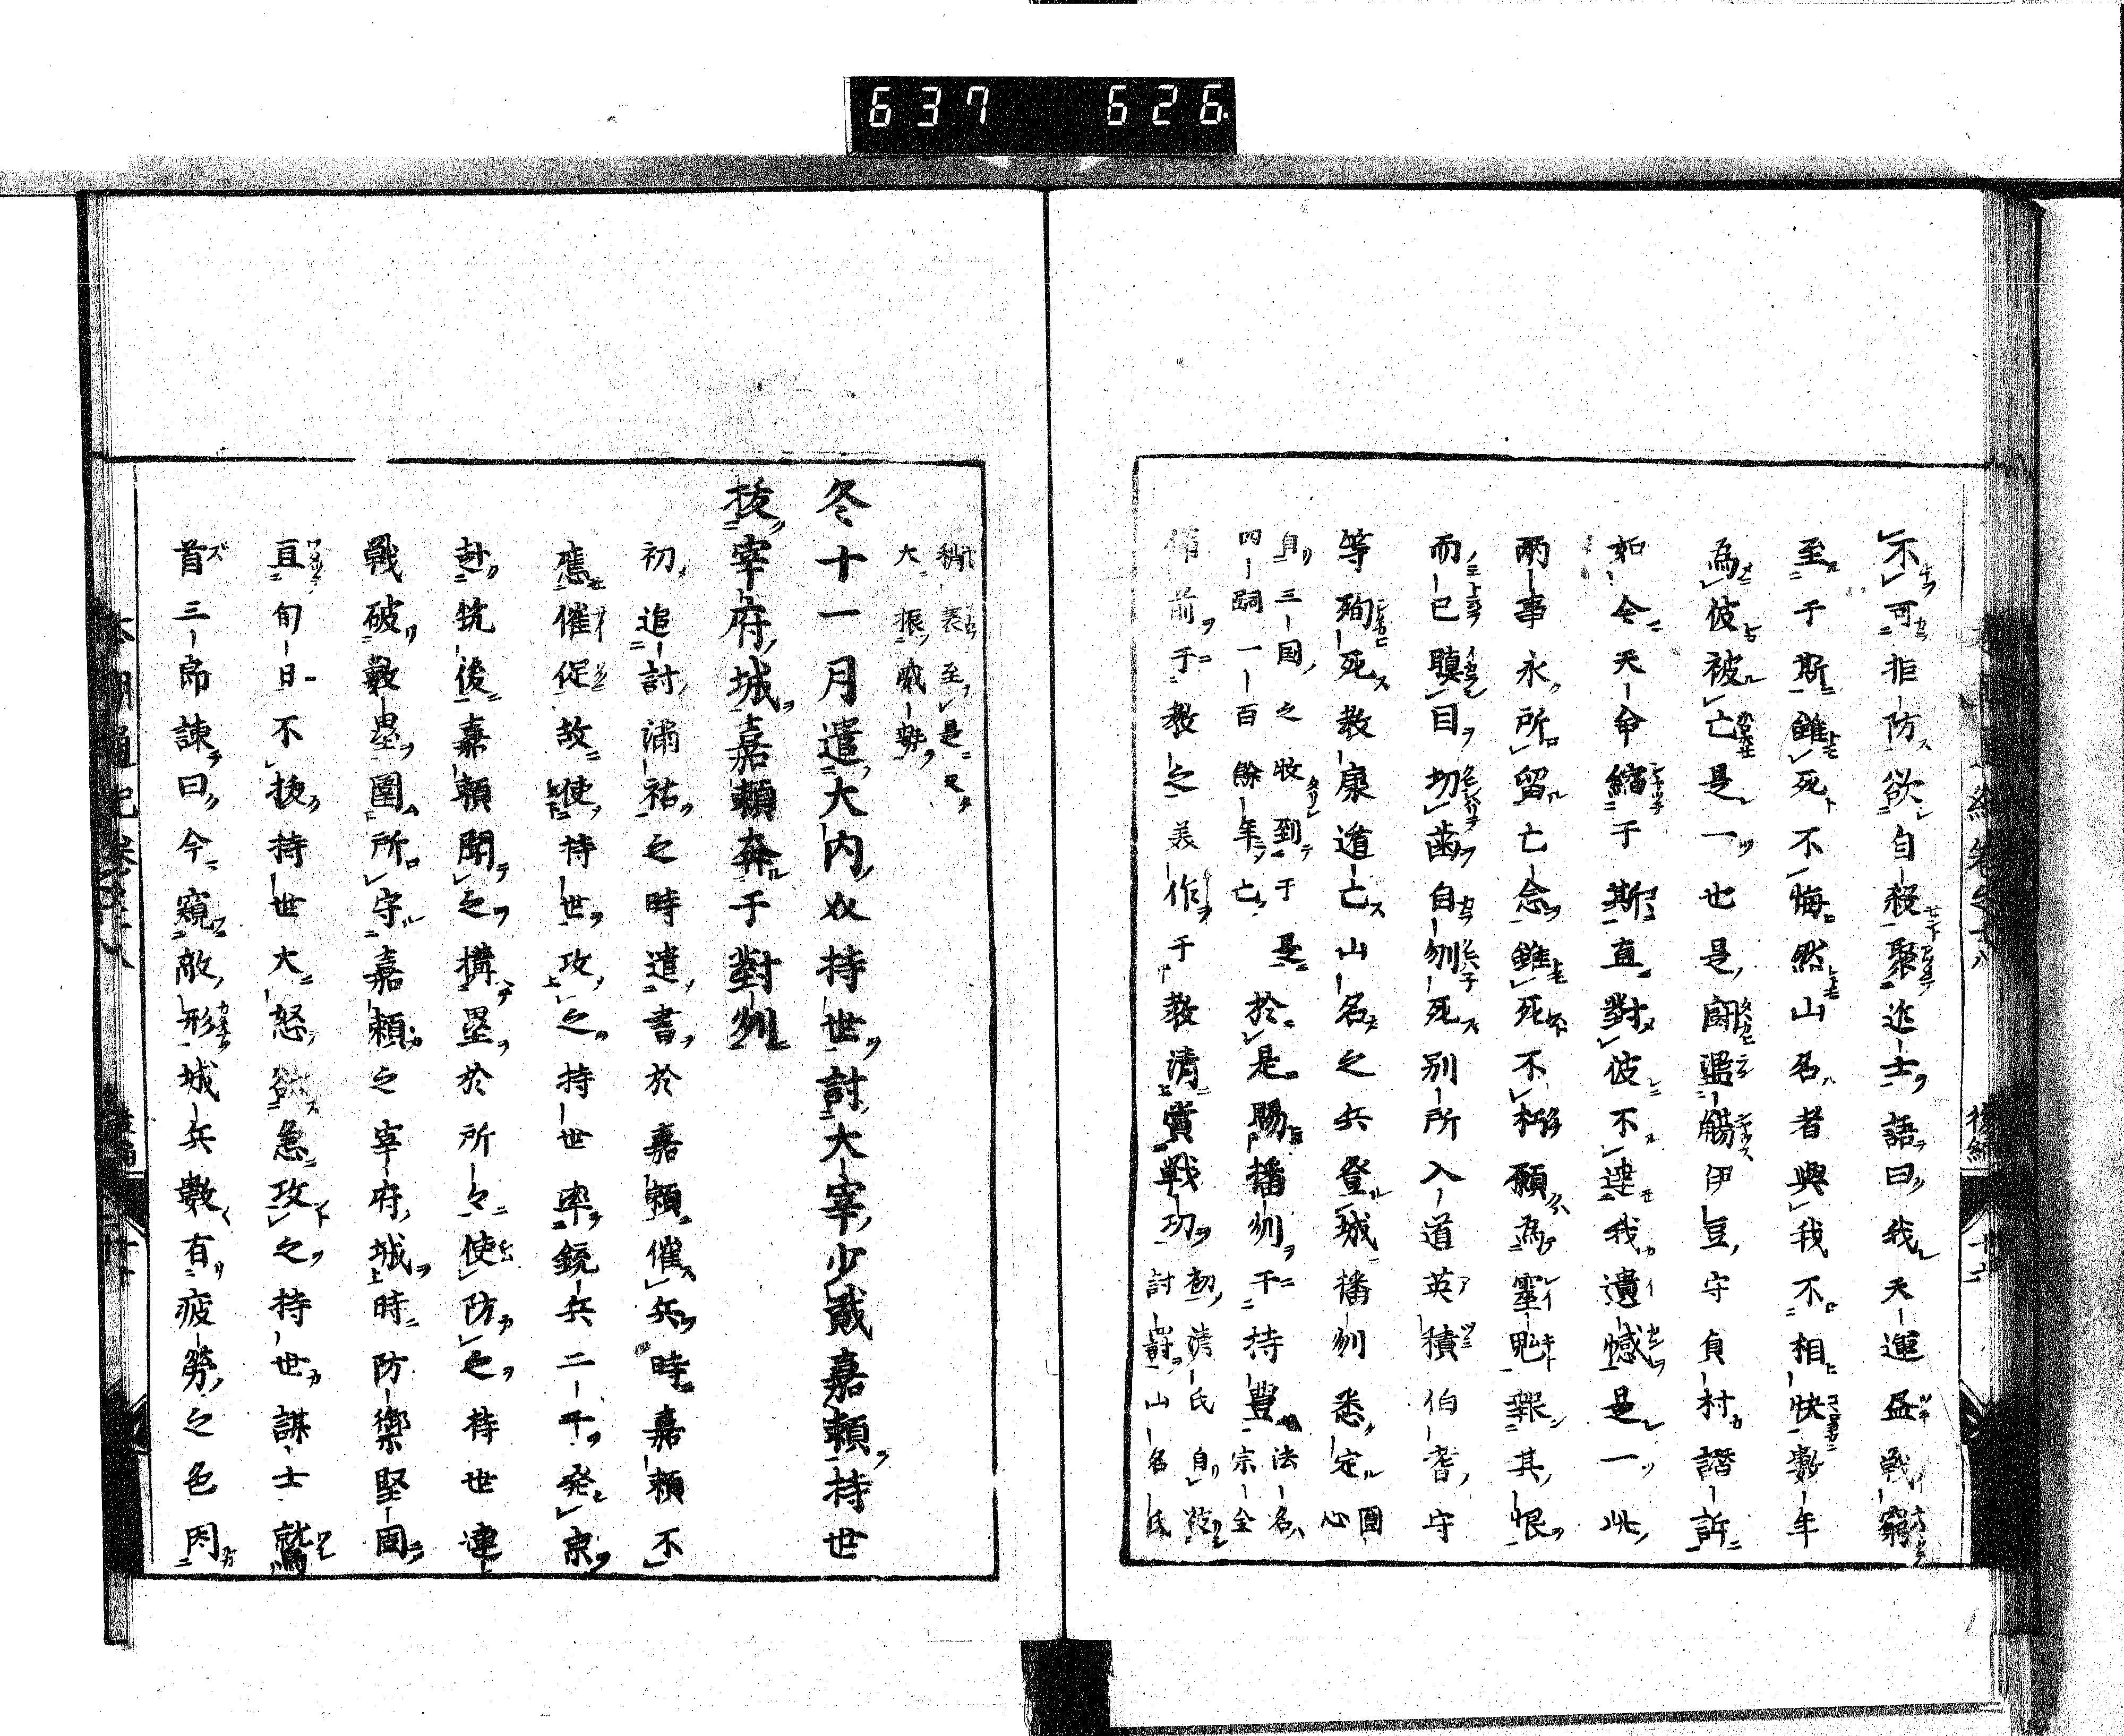 637 626
不可非防欲自殺聚近士語曰我天運益戦窮
至于斯雖死不悔然山名者與我不相快數年
為彼被亡是一也是闘盪觴伊豆守貞村讒訴
如今天命縮于斯直對彼不達我遺憾是一此
兩事永所留亡念雖死不朽願為靈鬼報其恨
而已瞋目切歯自刎死別所入道英積伯耆守
等殉死教康遁亡山名之兵登城播州悉定圓心
自三国之牧到于是
四嗣一百餘年亡
於是賜播州于持豊法名宗全
備前于教之美作于教清賞戦功初満氏自被
討罸山名氏
稍衰至是又
大振威勢
冬十一月遣大内奴持世討大宰少貳嘉頼持世
抜宰府城嘉頼奔于對州
初追討満祐之時遣書於嘉頼催兵時嘉頼不
應催促故使持世攻之持世率銃兵二千発京
赴筑後嘉頼聞之搆塁於所々使防之持世連
戰破數塁圍所守嘉頼之宰府城時防禦堅固
亘旬日不抜持世大怒欲急攻之持世謀士鷲
首三郎諫曰今窺敵形城兵數有疲労之色因
本朝通紀巻
後編